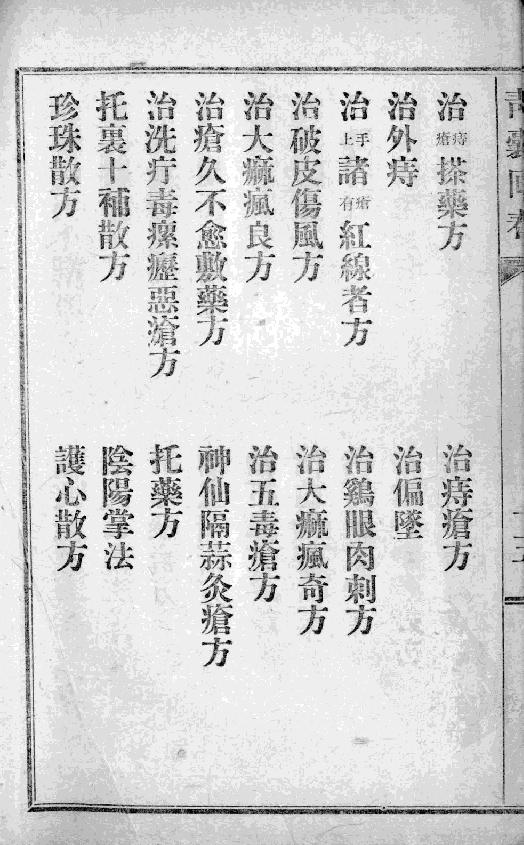 治痔瘡搽藥方
治痔瘡方
治外痔
治偏墜
治手上諸瘡有紅線者方
治鷄眼肉刺方
治破皮傷風方
治大痲瘋奇方
治大痲瘋良方
治五毒瘡方
治瘡久不愈敷藥方
神仙隔蒜灸瘡方
治洗疔毒瘰癧惡瘡方
托藥方
托裏十補散方
陰陽掌法
珍珠散方
護心散方